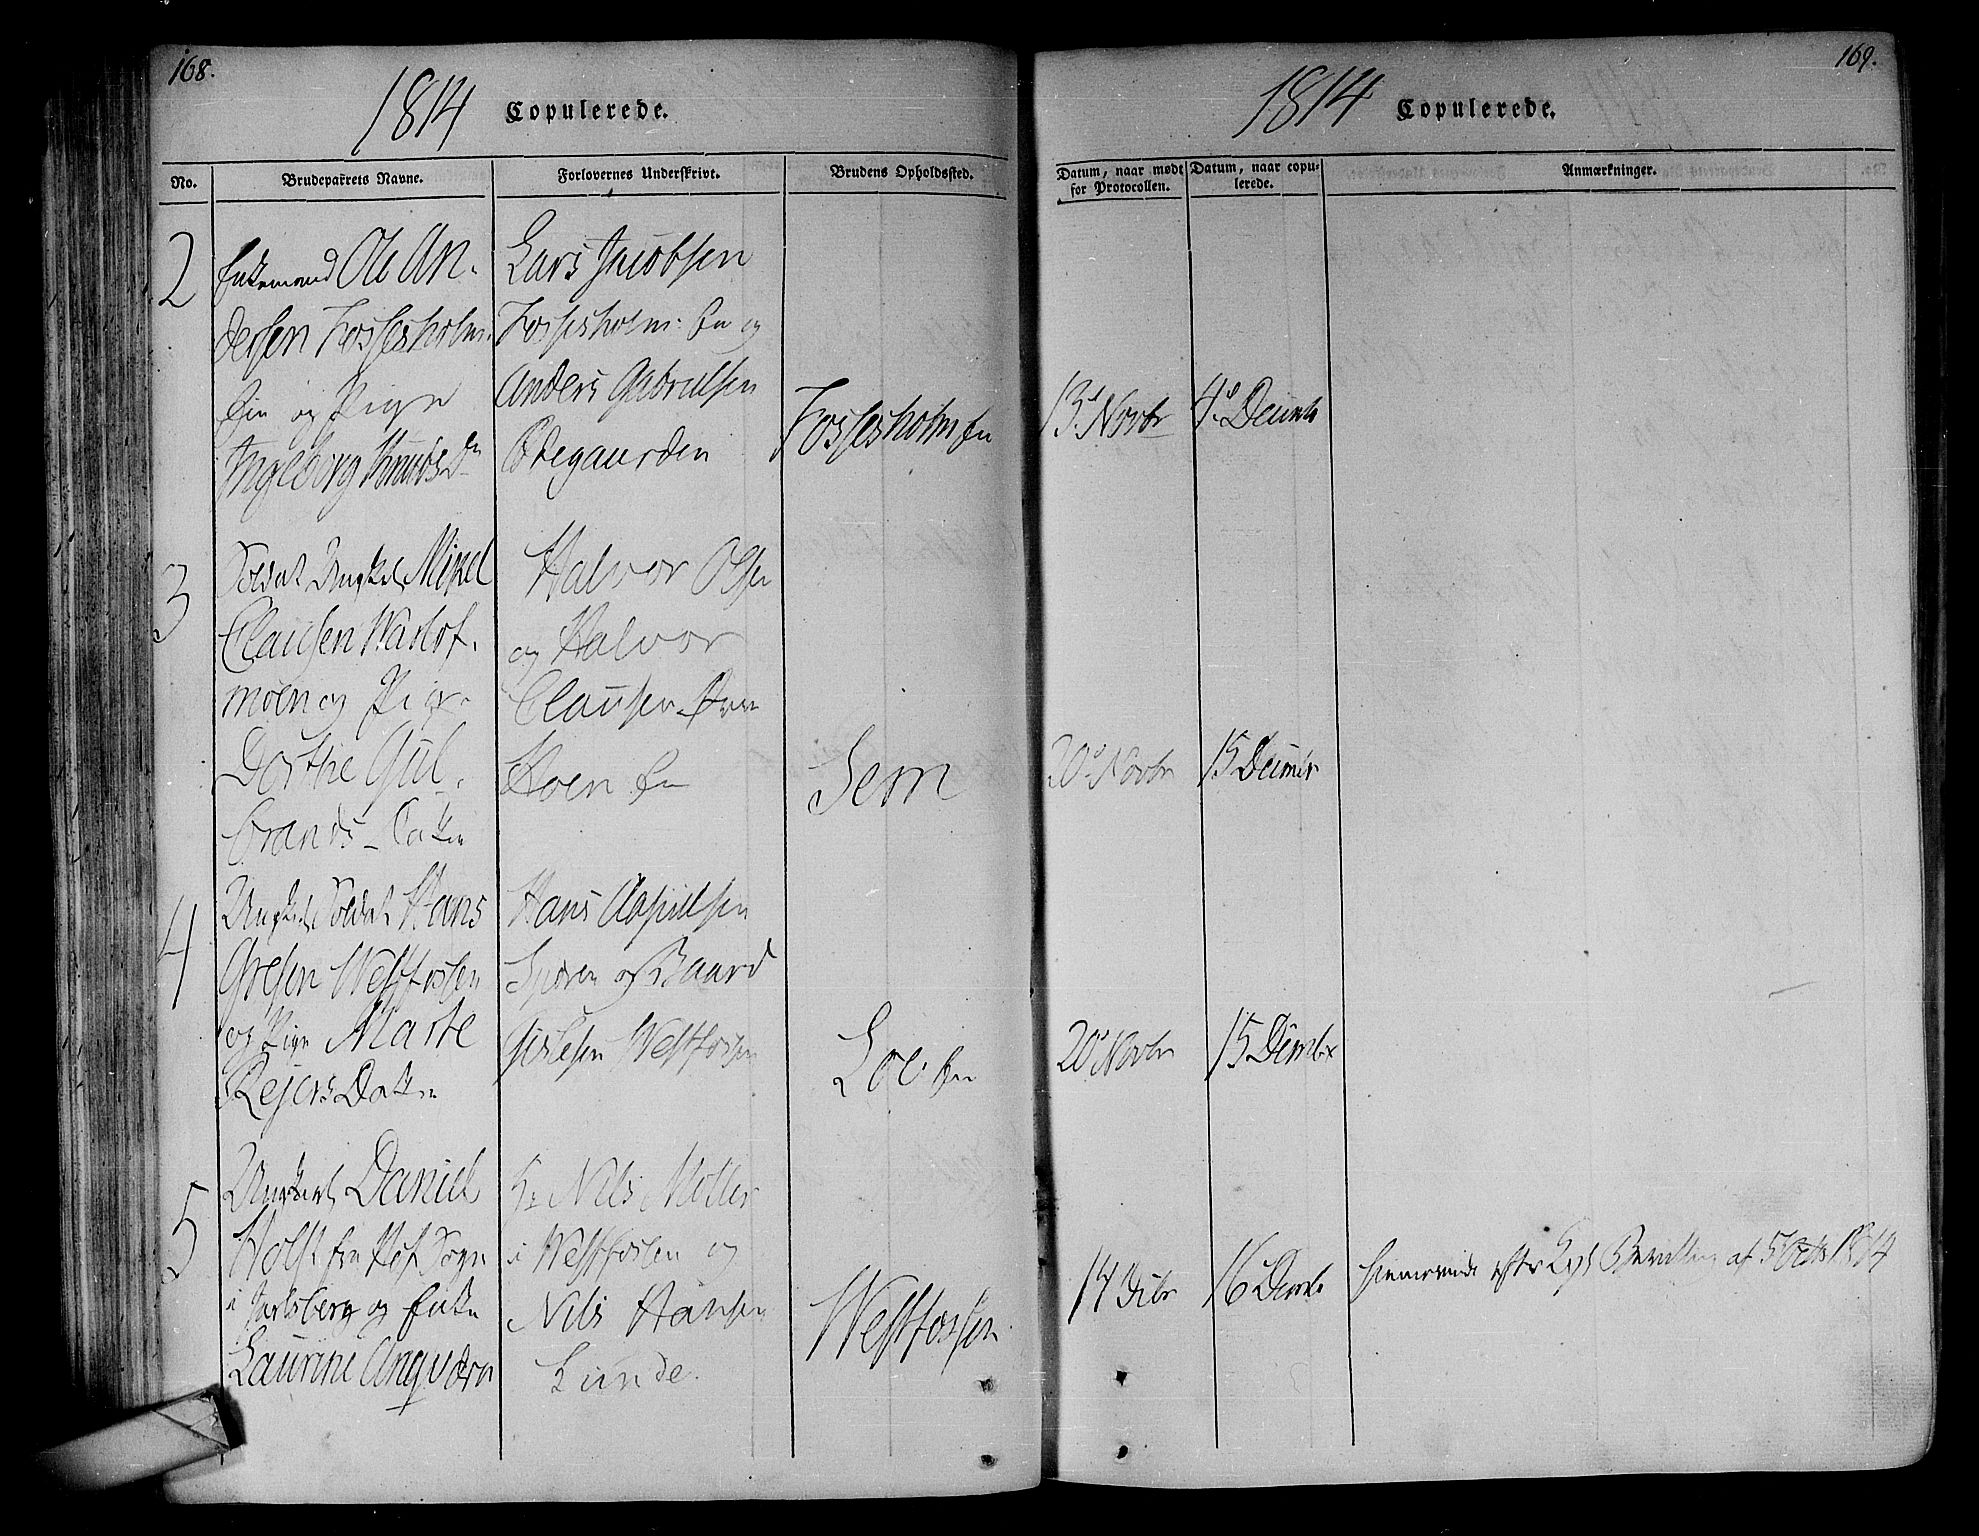 168.
1814 Copulerede.
No. Brudeparrets Navne. Forlovernes Underskrivt. Brudens Opholdssted.
2
Enkemand Ole An-
dersen Fossesholm.
Eie og Pige
Ingeborg Knuds Dn
Lars Jacobsen
Fossesholm: Eie og
Anders Gabrielsen
Ødegaarden
Fossesholm Eie
3
Soldat Ungkarl Mikel
Clausen
moen og Pige
Dorthe Gul-
brands- Datter
Halvor Olsen
og Halvor
Clausen
Hoen Eie
Sem
4
Ungkarl Soldat Hans
Gresen Westfossen
og Pige Marte
Rejers Datter
Hans
og Baard
Gislesen Westfossen
Loe. Eie
5
Ungkarl Daniel
Holst fra Hof Sogn
i Jarlsberg og Enke
Laurine
Hr Nils Møller
i Westfossen og
Nils Hansen
Lunde.
Westfossen
169.
1814 Copulerede.
Datum, naar mødt for Protocollen. Datum, naar copulerede. Anmærkninger.
13d Novbr 4d Decmbr
20d Novbr 15 Decmbr
20d Novbr 15 Decmbr
14 Decbr 16 Decbr hiemmeviede efter Kgl Bevilling af 5 Octb 1814